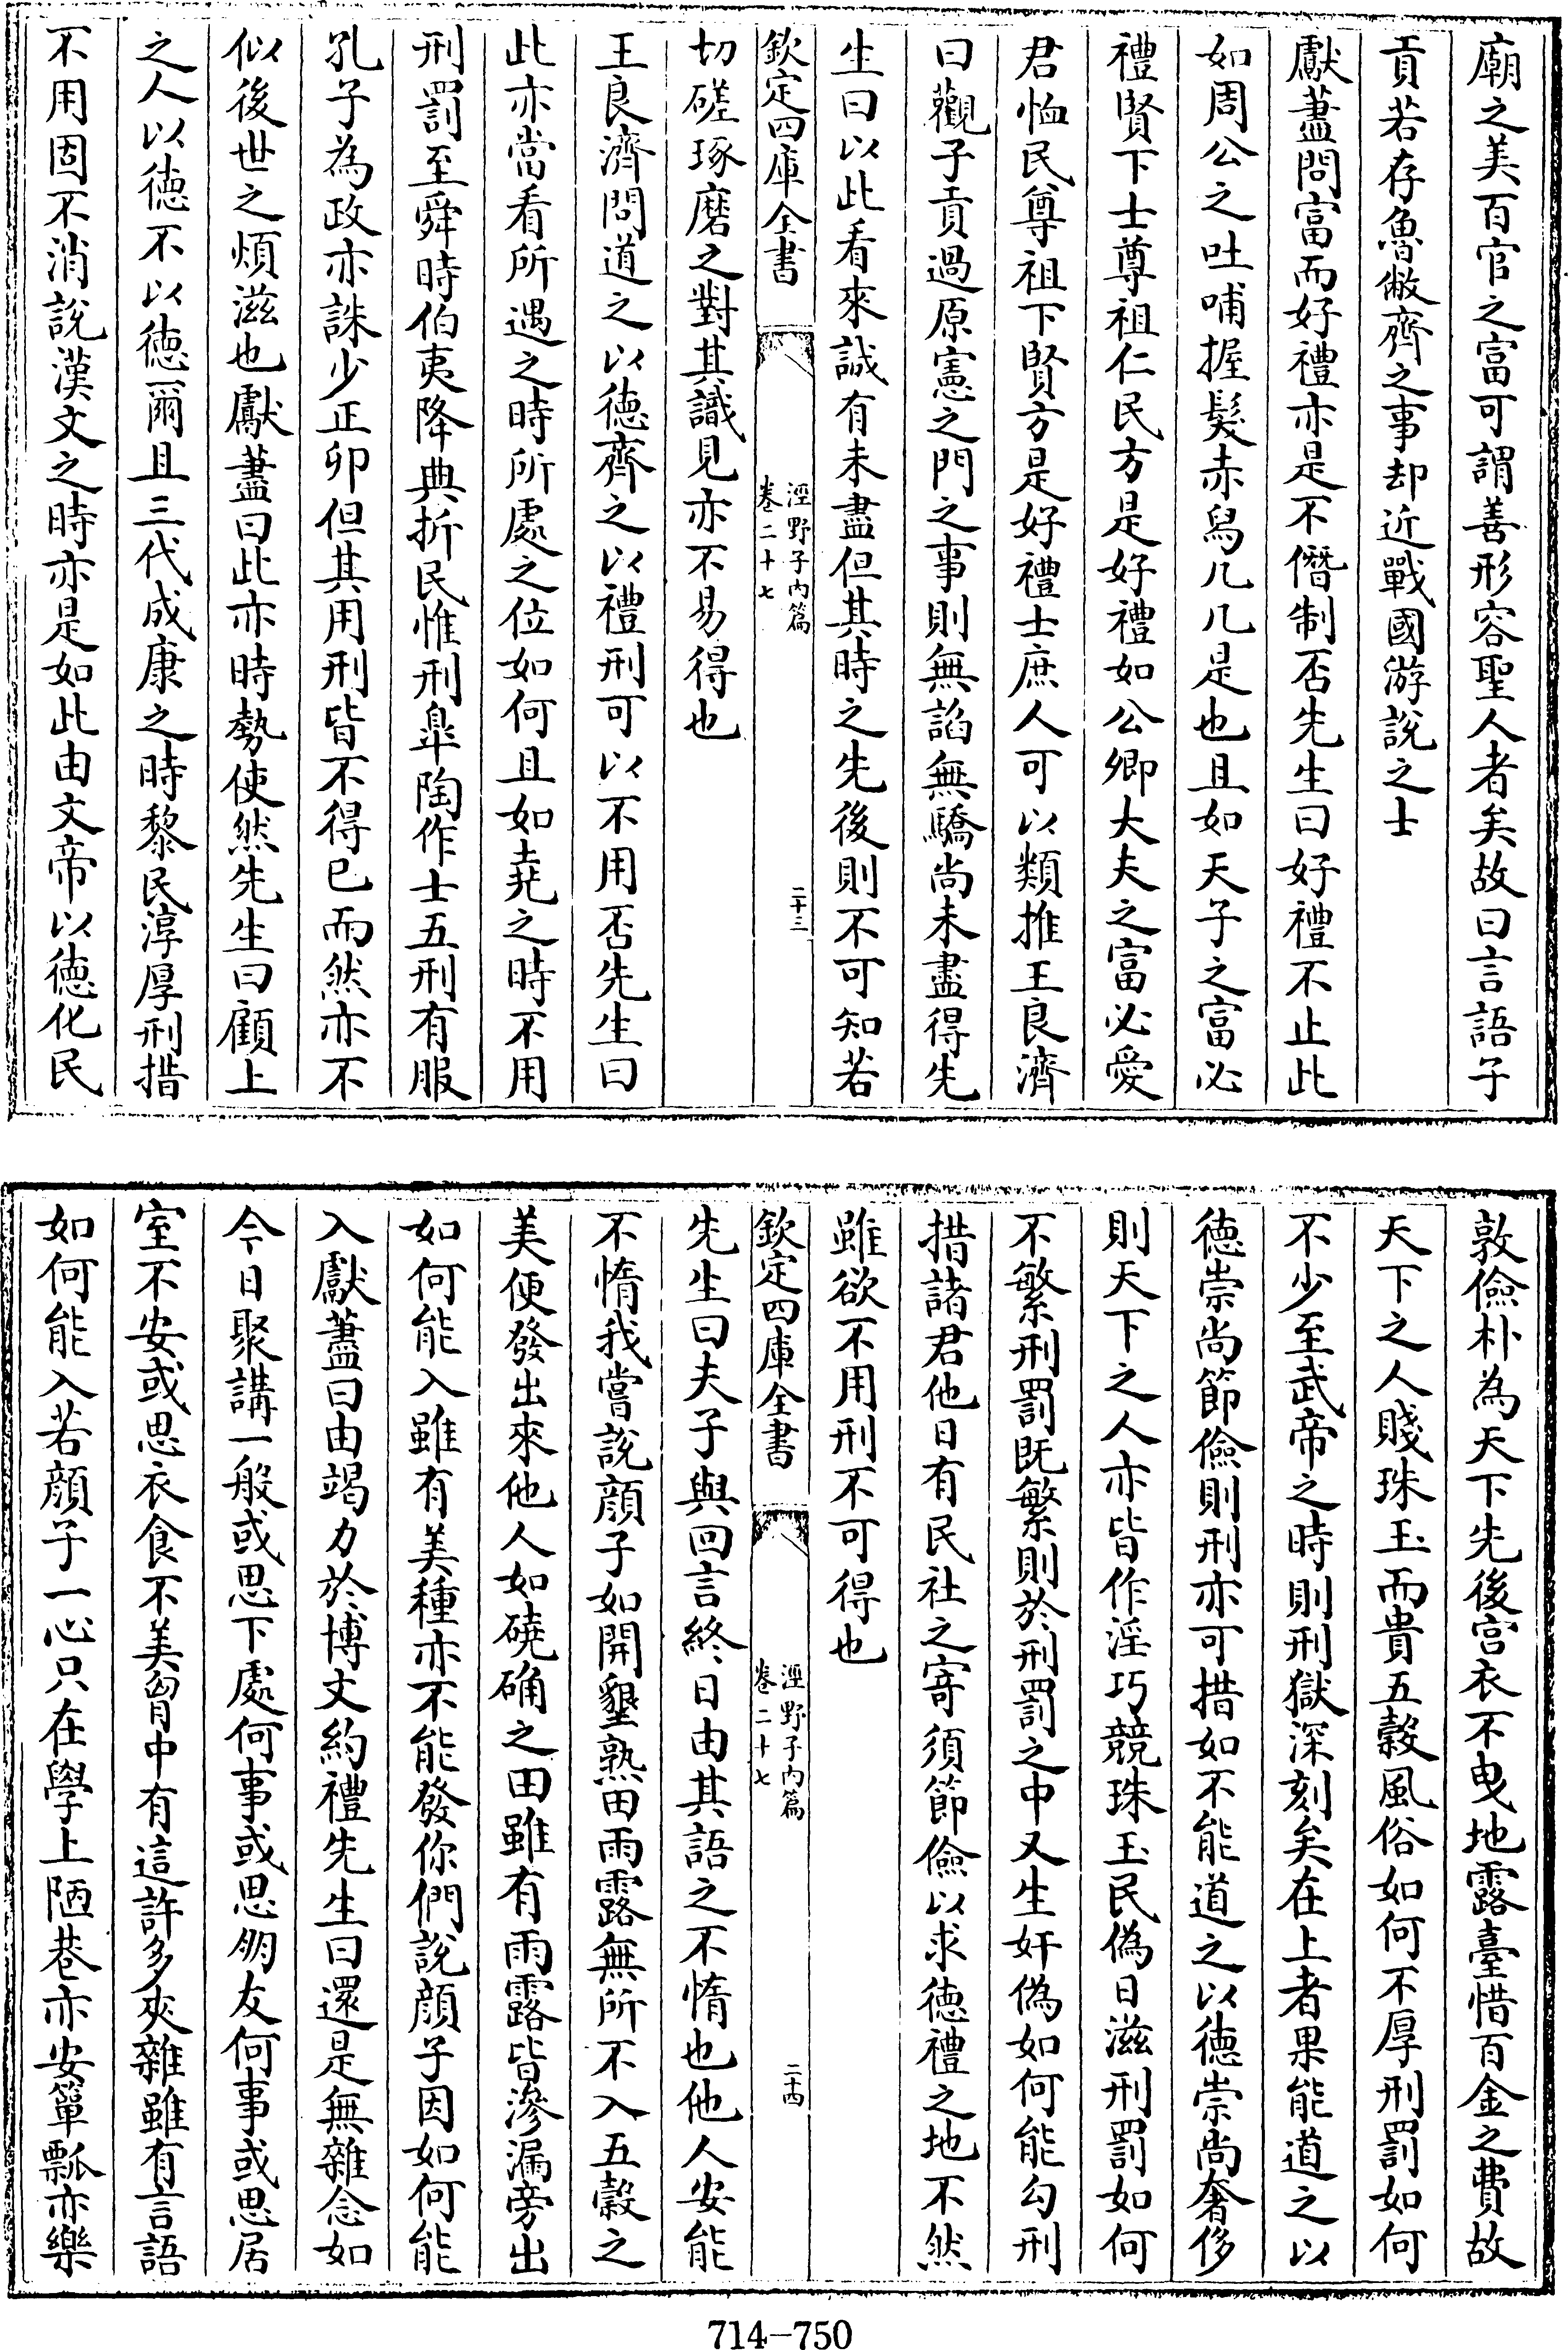 廟之美百官之富可謂善形容聖人者矣故曰言語子
貢若存魯敝齊之事却近戰國游說之士
獻藎問富而好禮亦是不僭制否先生曰好禮不止此
如周公之吐哺握髮赤舄几几是也且如天子之富必
禮賢下士尊祖仁民方是好禮如公卿大夫之富必愛
君恤民尊祖下賢方是好禮士庶人可以類推王良濟
曰觀子貢過原憲之門之事則無諂無驕尚未盡得先
生曰以此看來誠有未盡但其時之先後則不可知若
欽定四庫全書
涇野子內篇
卷二十七
二十三
切磋琢磨之對其識見亦不易得也
王良濟問道之以徳齊之以禮刑可以不用否先生曰
此亦當看所遇之時所處之位如何且如堯之時不用
刑罰至舜時伯夷降典折民惟刑臯陶作士五刑有服
孔子為政亦誅少正卯但其用刑皆不得已而然亦不
似後世之煩滋也獻藎曰此亦時勢使然先生曰顧上
之人以徳不以徳爾且三代成康之時黎民淳厚刑措
不用固不消說漢文之時亦是如此由文帝以徳化民
敦儉朴為天下先後宫衣不曳地露臺惜百金之費故
天下之人賤珠玉而貴五穀風俗如何不厚刑罰如何
不少至武帝之時則刑獄深刻矣在上者果能道之以
徳崇尚節儉則刑亦可措如不能道之以徳崇尚奢侈
則天下之人亦皆作淫巧競珠玉民偽日滋刑罰如何
不繁刑罰既繁則於刑罰之中又生奸偽如何能勾刑
措諸君他日有民社之寄須節儉以求徳禮之地不然
雖欲不用刑不可得也
欽定四庫全書
涇野子內篇
卷二十七
二十四
先生曰夫子與回言終日由其語之不惰也他人安能
不惰我嘗說顔子如開墾熟田雨露無所不入五穀之
美便發出來他人如磽确之田雖有雨露皆滲漏旁出
如何能入雖有美種亦不能發你們說顔子因如何能
入獻藎曰由竭力於博文約禮先生曰還是無雜念如
今日聚講一般或思下處何事或思朋友何事或思居
室不安或思衣食不美胷中有這許多夾雜雖有言語
如何能入若顔子一心只在學上陋巷亦安簞瓢亦樂
714-750